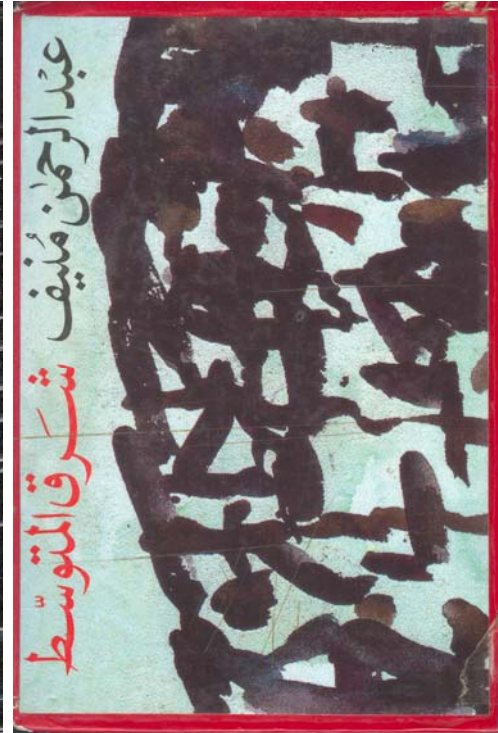 عَبْد الرحمٰن مُنيف
شَرق المتوسّط